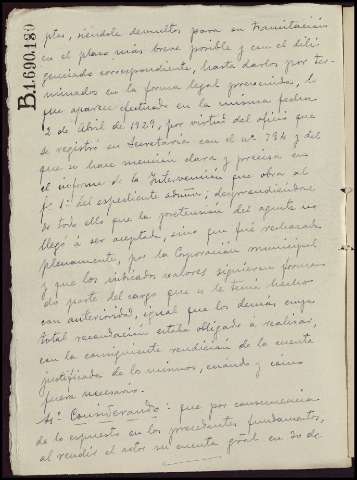 B1.690.180
ptes, siéndole devueltos para su tramitación
en el plazo más breve posible y con el dili-
genciado correspondiente, hasta darlos por ter-
minados en la forma legal prevenida, lo
que aparece efectuado en la misma fecha
2 de Abril de 1929, por virtud del oficio que
se registró en Secretaría con el nº 794 y del
que se hace mención clara y precisa en
el informe de la Intervención que obra al
fº 1º del expediente aduñº; desprendiéndose
de todo ello que la pretensión del agente no
llegó a ser aceptada, sino que fué rechazada
plenamente, por la Corporación municipal
y que los indicados valores siguieron forman-
do parte del cargo que se le tenía hecho
con anterioridad, igual que los demás cuya
total recaudación estaba obligado a realizar,
con la consiguiente rendición de la cuenta
justificada de los mismos, cuando y como
fuera necesario.
4º Considerando: que por consecuencia
de lo expuesto en los precedentes fundamentos,
al rendir el actor su cuenta gral en 30 de